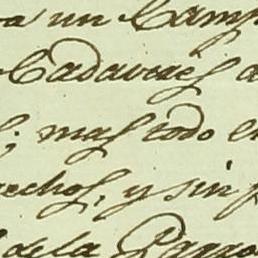 a un Camp
Cadaveres d
s; mas todo e
echos, y sin p
de la Parro